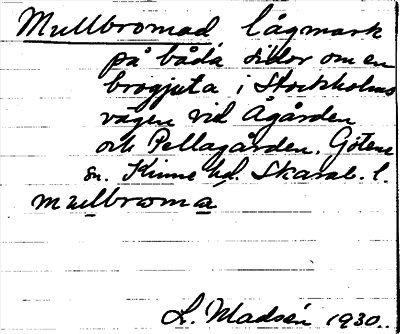 Mullbromad lågmark
på båda sidor om en
brogjuta i Stockholms
vägen vid Ågården
och Pellagården. Götene
sn. Kinne hd. Skarab. l.
mullbroma
L. Madsén 1930.